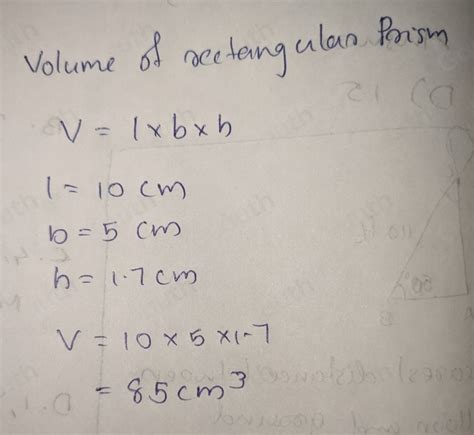 Volume of rectangular Prism
V = l x b x h
l = 10 cm
b = 5 cm
h = 1.7 cm
V = 10 x 5 x 1.7
= 85 cm³